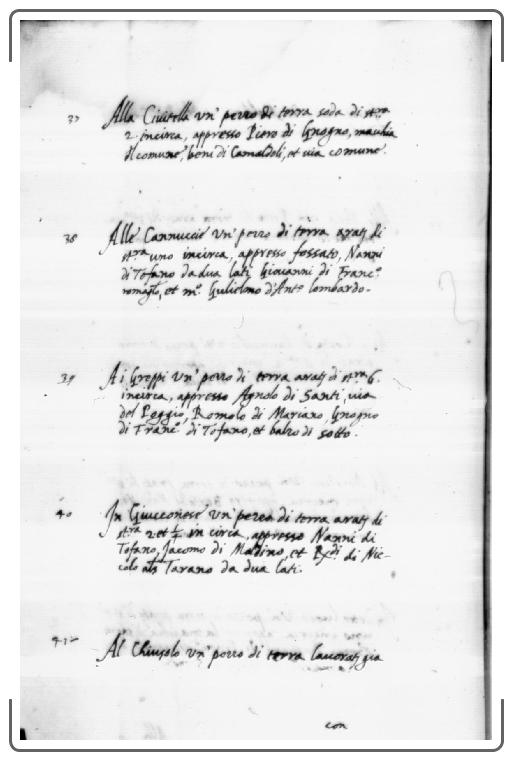 37 Alla Ciuitella un' pezzo di terra soda di st.ra
2. incirca, appresso Piero di Gnogno, macchia
d'l comune, beni di Camaldoli, et uia comune.
38 Alle Cannuccie un' pezzo di terra arat. di
st.ra uno incirca, appresso fossato, Nanni
di Tofano da dua lati, Giouanni di Franc.o
et m.o Gulielmo d'Ant.o lombardo.
39 Ai Greppi un' pezzo di terra arat. di st.ra 6.
incirca, appresso Agnolo di Santi, uia
del Poggio, Romolo di Mariano, Gnogno
di Franc.o di Tofano, et balzo di sotto.
40 In Giucconese un' pezzo di terra arat. di
st.ra 2. et 1/2 in circa, appresso Nanni di
Tofano, Jacomo di Madino, et di Nic-
colo als Tarano da dua lati.
41 Al Chiusolo un' pezzo di terra lauorat. gia
con